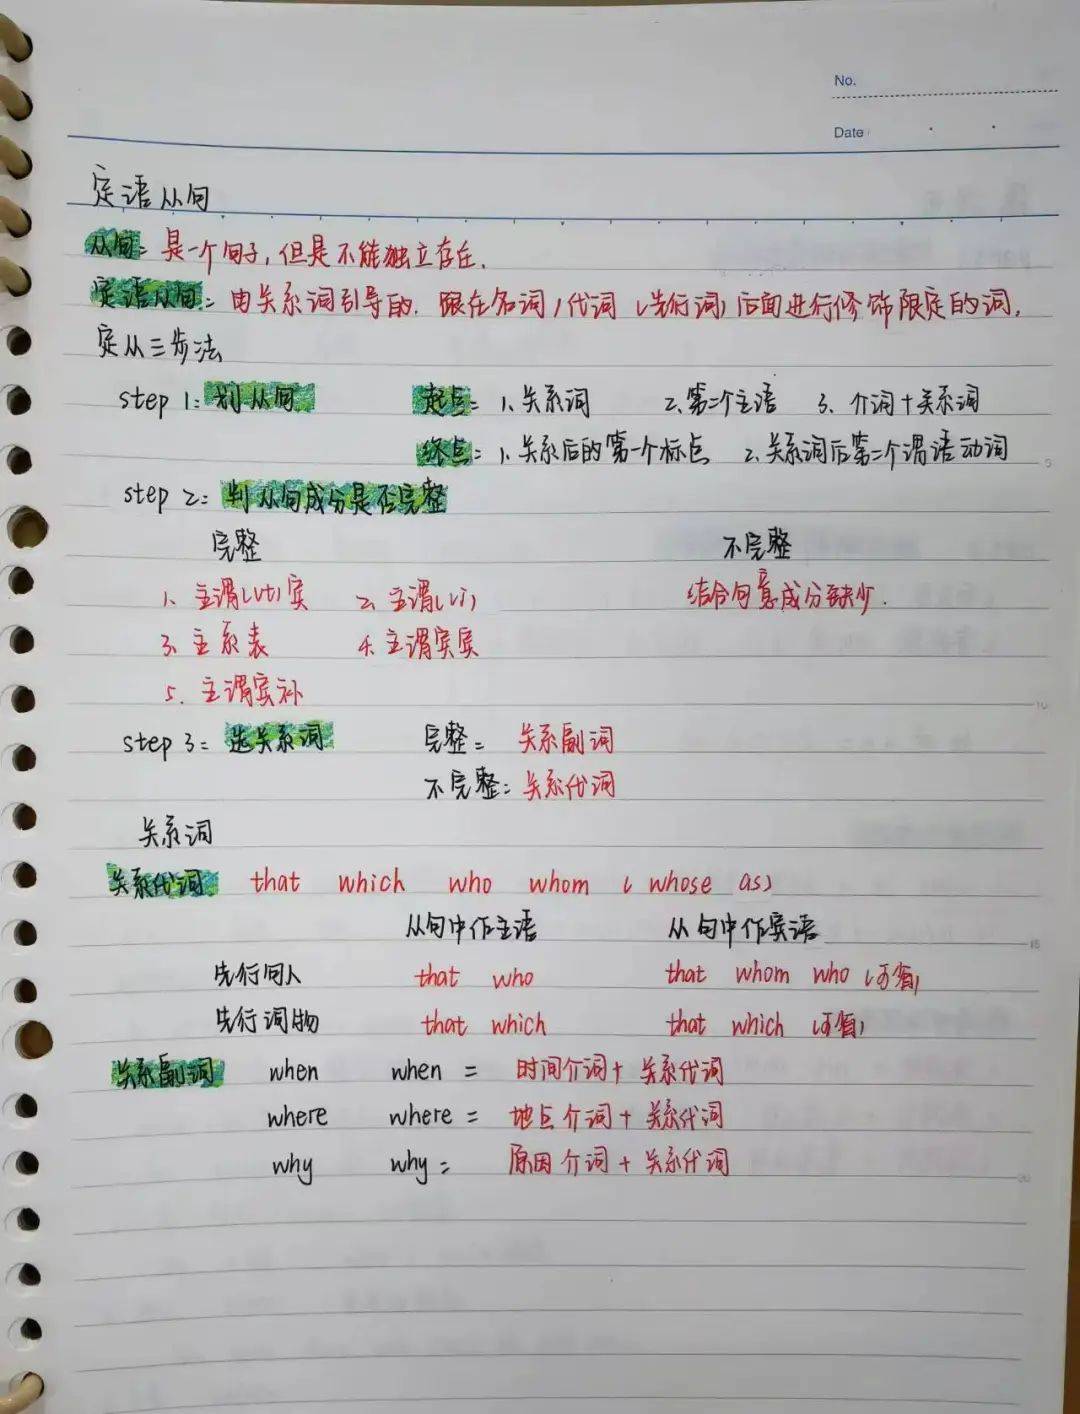 No.
Date
定语从句
从句: 是一个句子,但是不能独立存在.
定语从句: 由关系词引导的. 跟在名词/代词 (先行词) 后面进行修饰限定的词.
定从三步法
step 1: 划从句 起点: 1、关系词 2、第二个主语 3、介词+关系词
终点: 1、关系后的第一个标点 2、关系词后第二个谓语动词
5
step 2: 判从句成分是否完整
完整 不完整
1、主谓(vt)宾 2、主谓(vi) 结合句意成分缺少.
3、主系表 4、主谓宾宾
5、主谓宾补
10
step 3: 选关系词 完整: 关系副词
不完整: 关系代词
关系词
关系代词 that which who whom ( whose as)
从句中作主语 从句中作宾语
15
先行词人 that who that whom who (可省)
先行词物 that which that which (可省)
关系副词 when when = 时间介词+关系代词
where where = 地点介词+关系代词
why why = 原因介词+关系代词
20